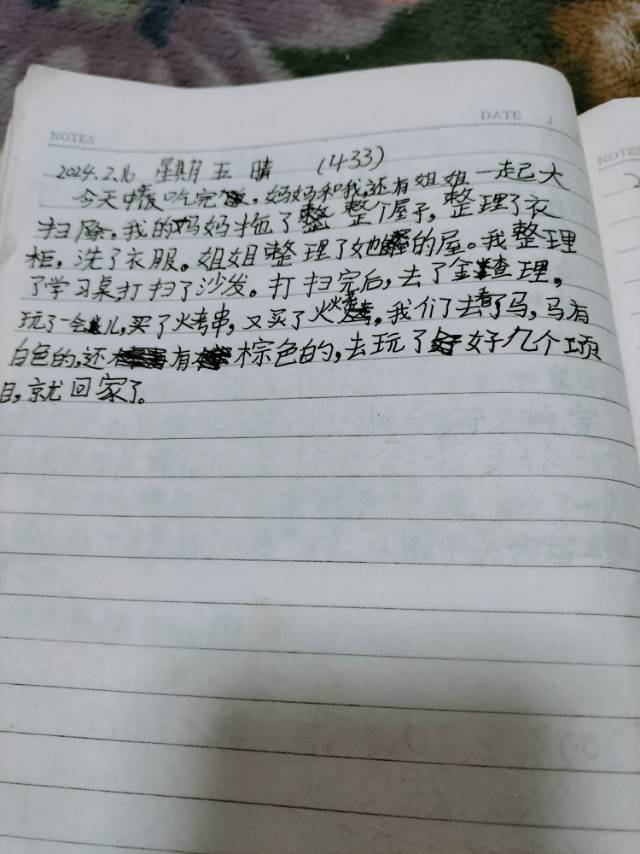 NOTES
DATE
NOTES
2024.2.16 星期五 晴 (433)
今天中饭吃完饭,妈妈和我,还有姐姐一起大
扫除,我的妈妈拖了整整个屋子,整理了衣
柜,洗了衣服。姐姐整理了她的屋。我整理
了学习桌打扫了沙发。打扫完后,去了金查理。
玩了一会儿,买了火烤串,又买了火,我们去看了马,马有
白色的,还有棕色的,去玩了好几个项
目,就回家了。